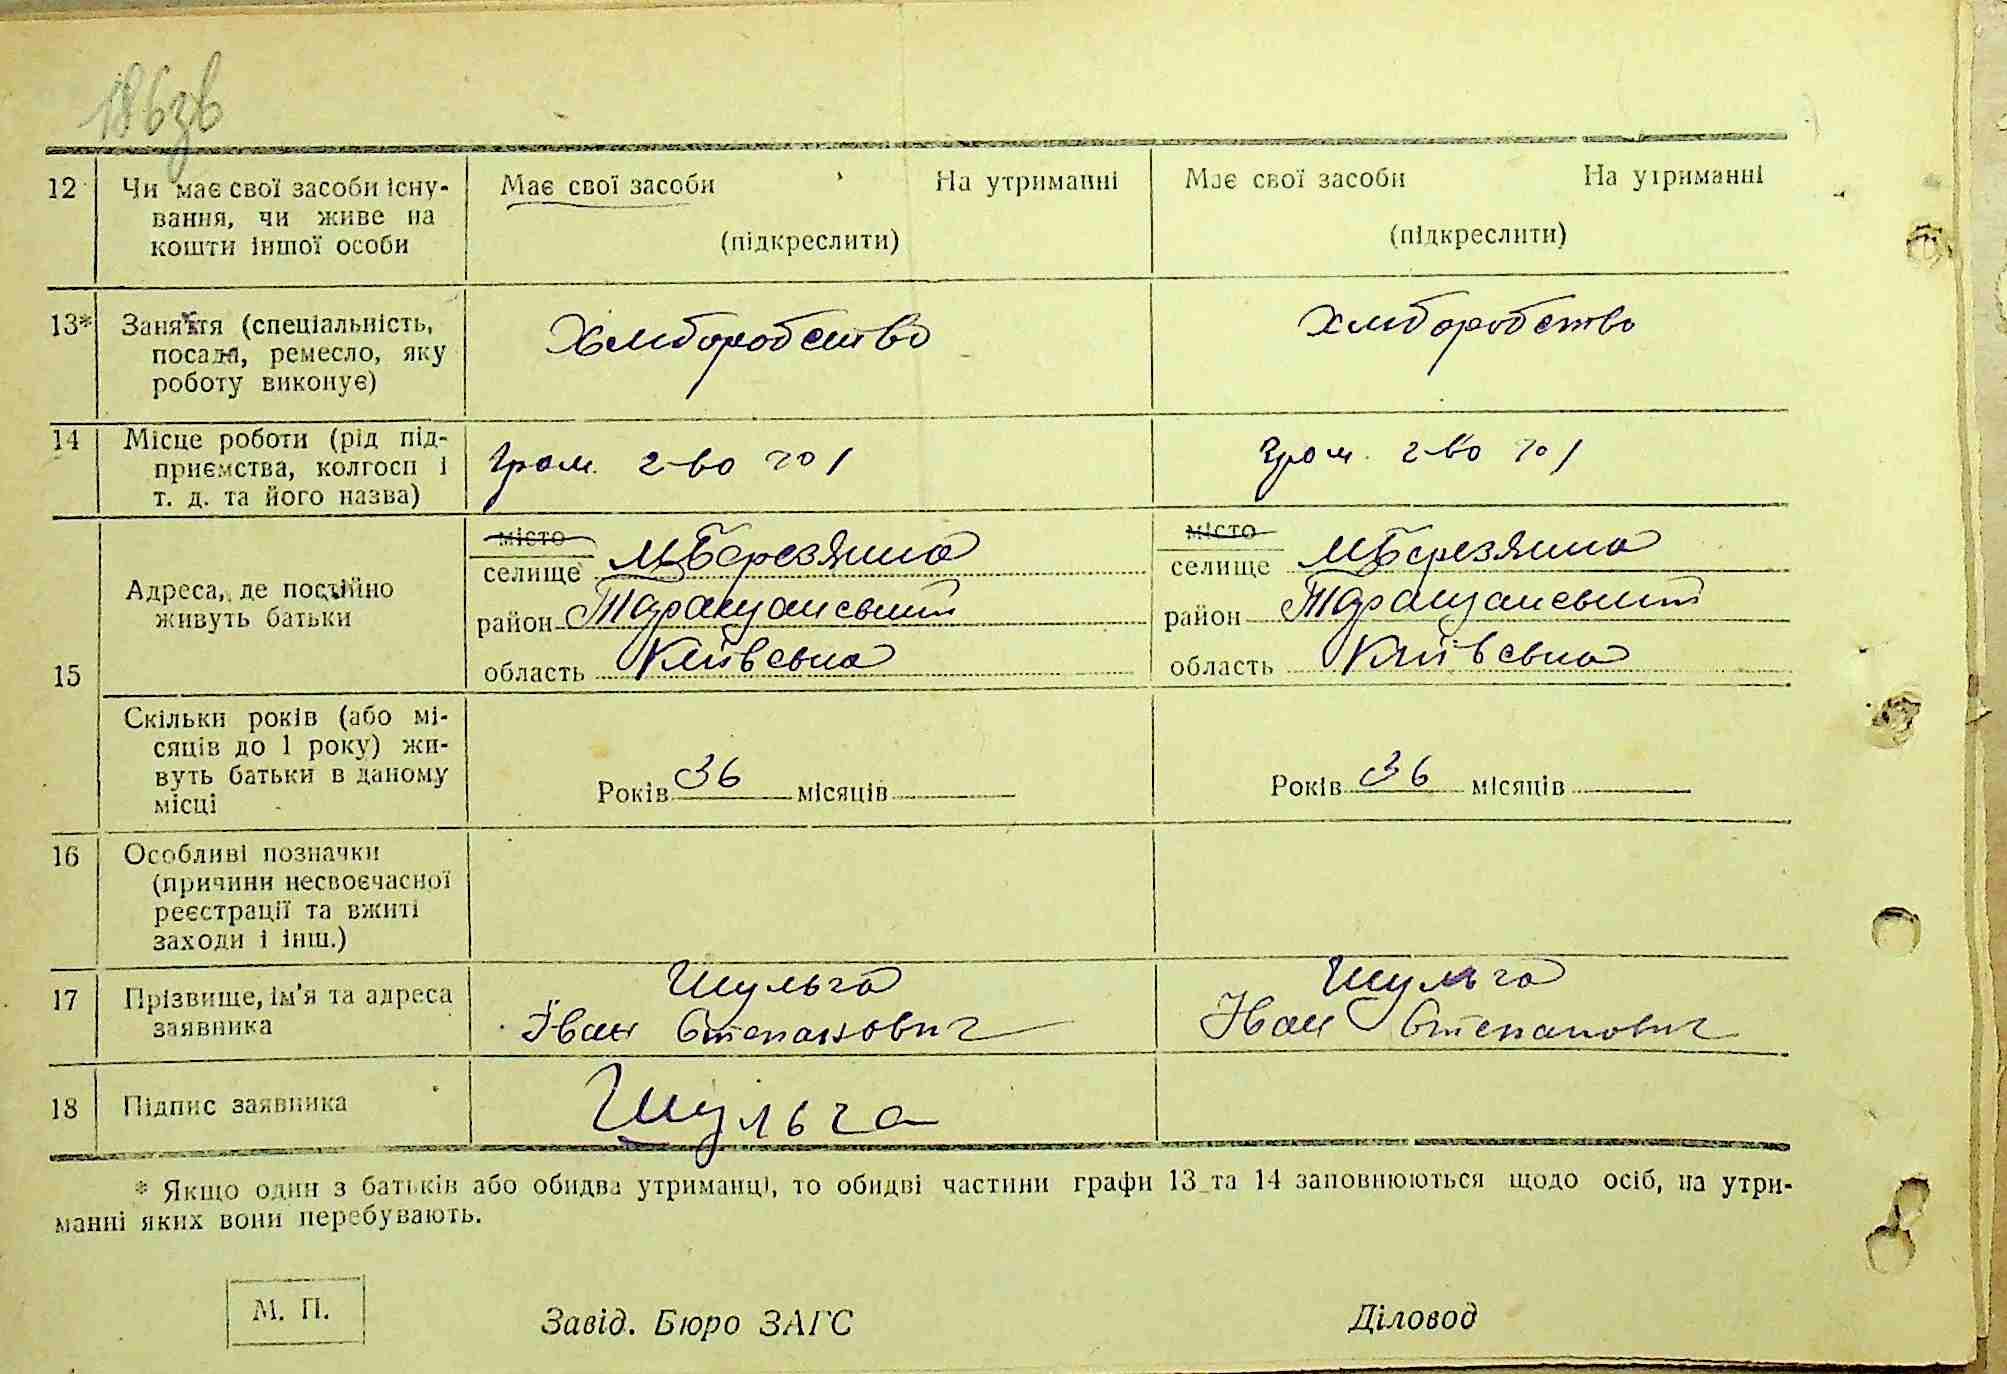 186зв
12 Чи має свої засоби існу- Має свої засоби На утриманні Має свої засоби На утриманні
вання, чи живе на
кошти іншої особи (підкреслити) (підкреслити)
13* Заняття (спеціальність, Хліборобство Хліборобство
посада, ремесло, яку
роботу виконує)
14 Місце роботи (рід під- Гром. г-во №1 Гром. г-во №1
приємства, колгосп і
т. д. та його назва)
15 Адреса, де постійно живуть батьки
місто місто
селище М Березянка селище М Березянка
район Таращанський район Таращанський
область Київська область Київська
Скільки років (або мі-
сяців до 1 року) жи-
вуть батьки в даному Років 36 місяців Років 36 місяців
місці
16 Особливі позначки
(причини несвоєчасної
реєстрації та вжиті
заходи і інш.)
17 Прізвище, ім'я та адреса Шульга Шульга
заявника Іван Степанович Іван Степанович
18 Підпис заявника Шульга
* Якщо один з батьків або обидва утриманці, то обидві частини графи 13 та 14 заповнюються щодо осіб, на утри-
манні яких вони перебувають.
М. П. Завід. Бюро ЗАГС Діловод